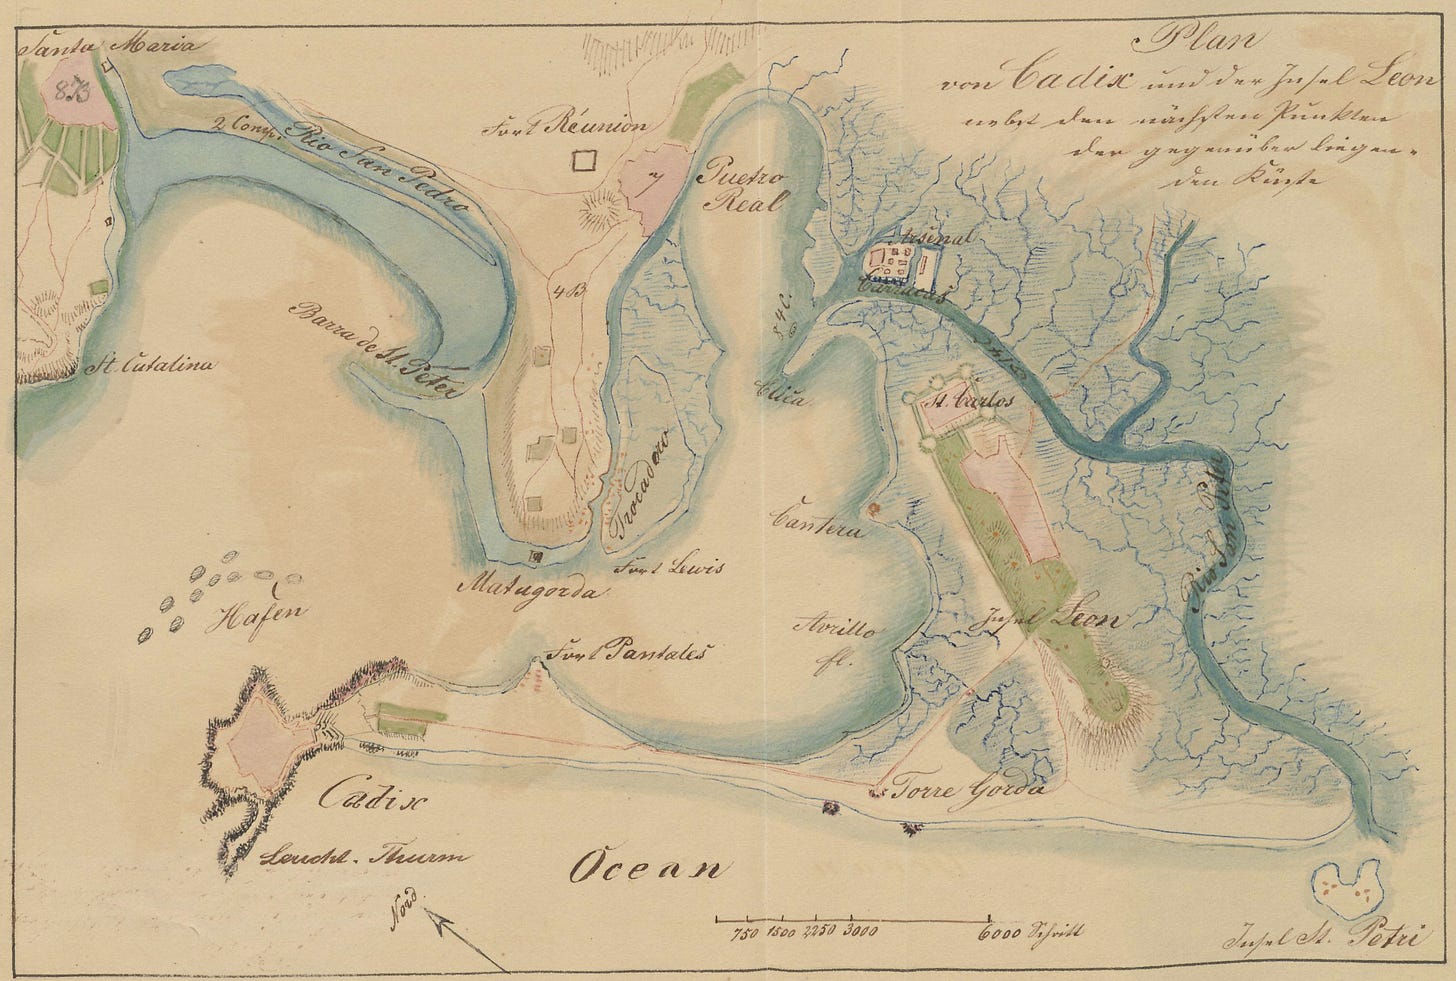 Plan
von Cadix und der Insel Leon
nebst den nächsten Punkten
der gegenüber liegen-
den Küste
Santa Maria
8B
2 Comp.
Rio San Pedro
Fort Réunion
7
Puetro
Real
Arsenal
Carracas
4B
Barra de St. Peter
St. Catalina
St. Carlos
Trocadero
Cantera
Rio San Petri
Matagorda
Fort Lewis
Hafen
Insel Leon
Fort Pantales
fl.
Torre Gorda
Cadix
Leucht-Thurm
Ocean
Nord
750 1500 2250 3000 6000 Schritt
Insel St. Petri